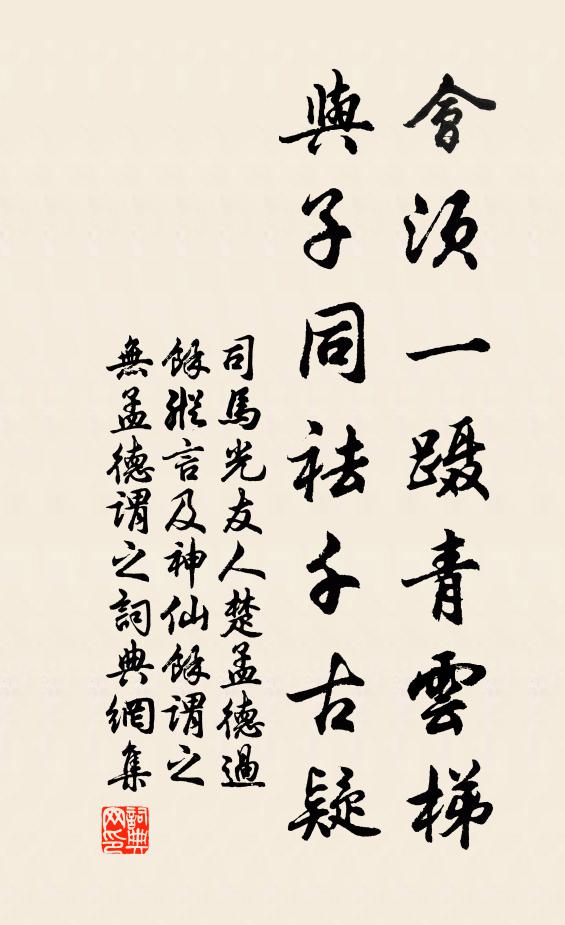 會須一蹑青雲梯
與子同祛千古疑
司馬光友人楚孟德過
餘縱言及神仙餘謂之
無孟德謂之詞典網集
詞典網印